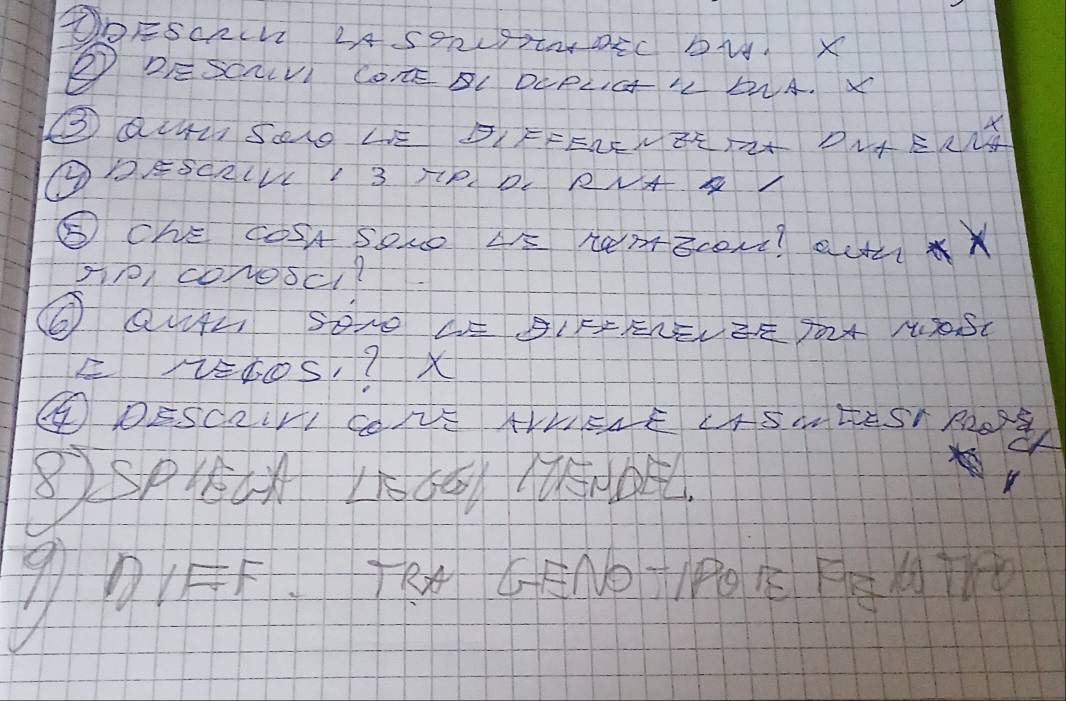 ① DESCRIVI LA STRUTTURA DEL DNA. X
② DESCRIVI COME SI DUPLICA IL DNA. X
③ QUALI SONO LE DIFFERENZE TRA DNA E RNA X
④ DESCRIVI I 3 TIPI DI RNA /
⑤ CHE COSA SONO LE MUTAZIONI? QUALI X
TIPI CONOSCI?
⑥ QUALI SONO LE DIFFERENZE TRA MITOSI
E MEIOSI? X
⑦ DESCRIVI COME AVVIENE LA SINTESI PROTEICA
8) SPIEGA LEGGI MENDEL.
9) DIFF. TRA GENOTIPO E FENOTIPO